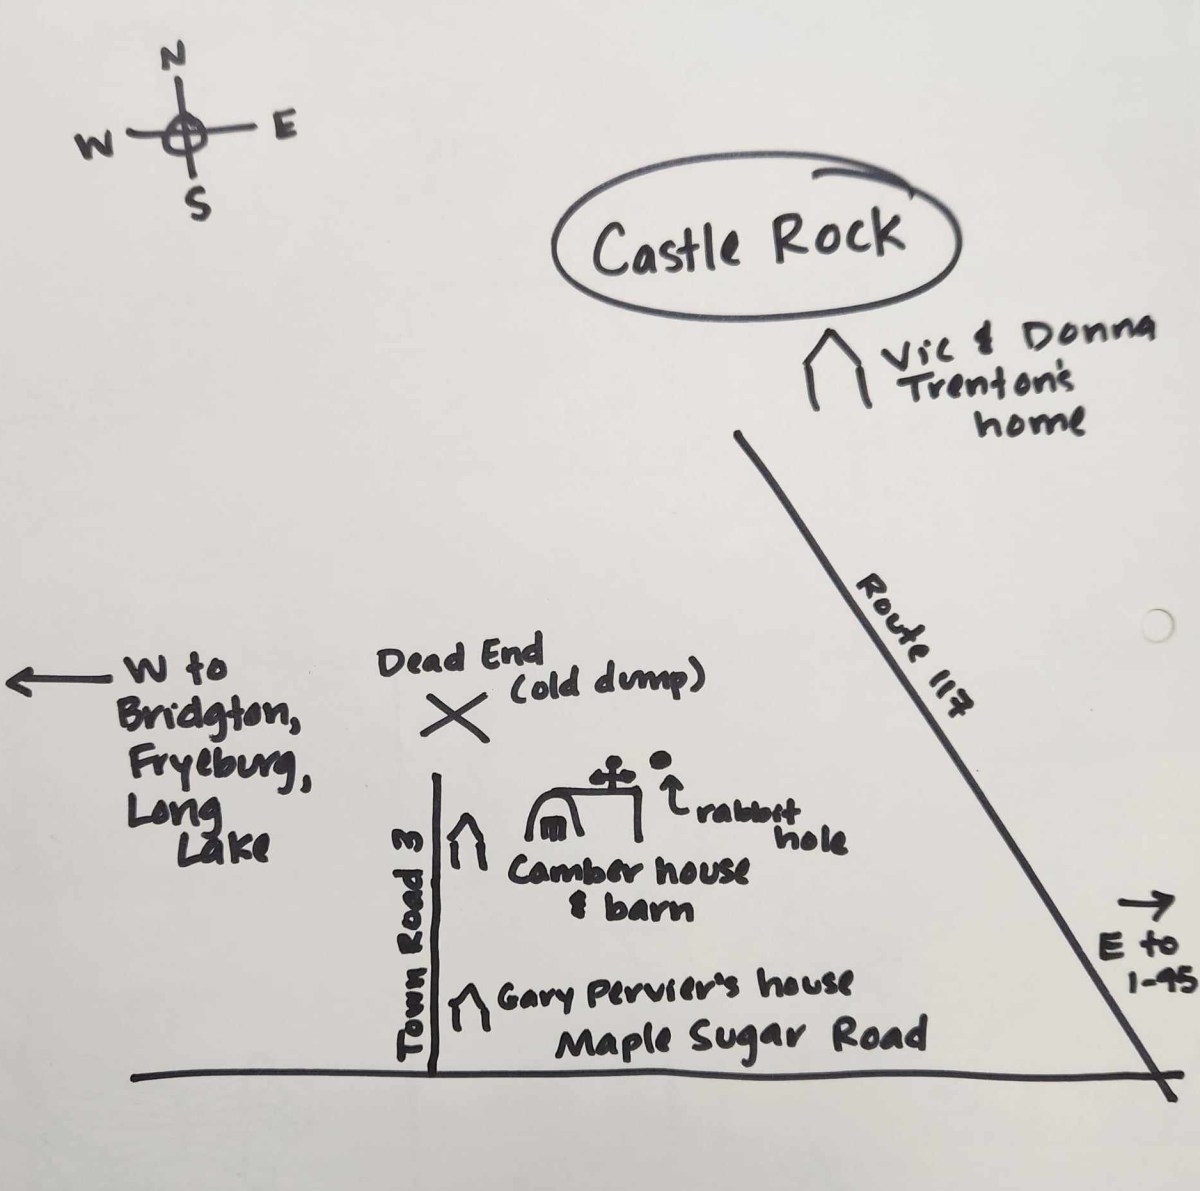 N
W E
S
Castle Rock
Vic & Donna
Trenton's
home
Route 117
W to
Bridgton,
Fryeburg,
Long
Lake
Dead End
(old dump)
rabbit
hole
Camber house
& barn
Town Road 3
E to
1-95
Gary Pervier's house
Maple Sugar Road